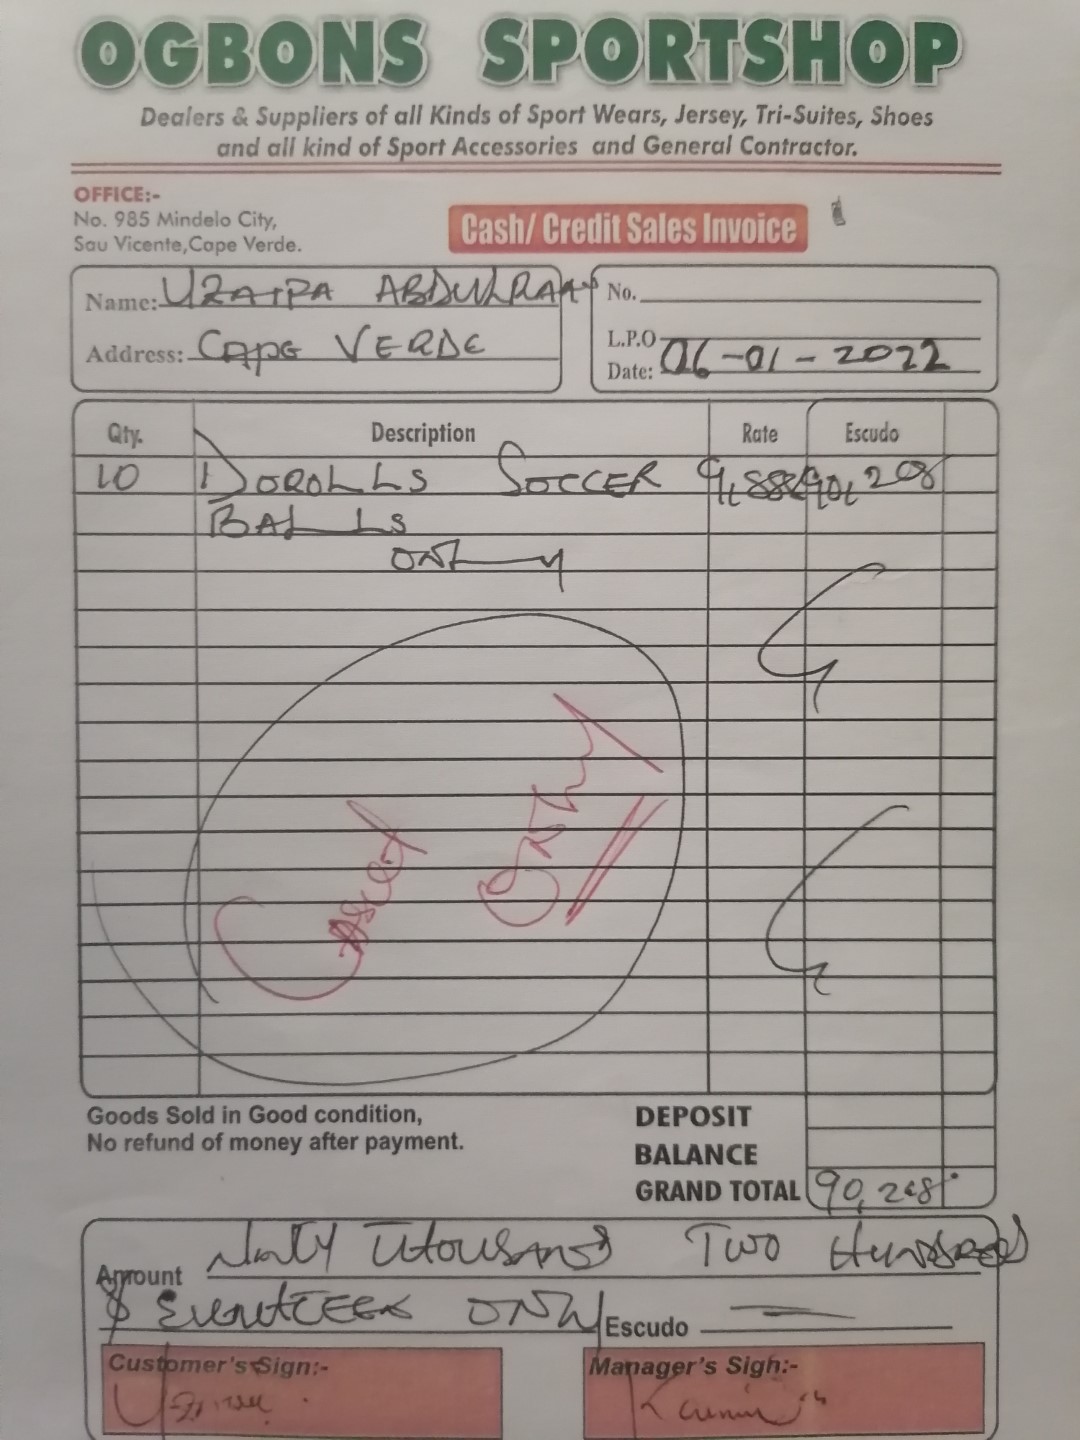 OGBONS SPORTSHOP
Dealers & Suppliers of all Kinds of Sport Wears, Jersey, Tri-Suites, Shoes
and all kind of Sport Accessories and General Contractor.
OFFICE:-
No. 985 Mindelo City,
Sau Vicente, Cape Verde.
Cash/ Credit Sales Invoice
Name:
Address: CAPE VERDE
No.
L.P.O
Date: 06-01-2022
Qty. Description Rate Escudo
10 SOCCER
BALLS
ONLY
ONLY
Goods Sold in Good condition,
No refund of money after payment.
DEPOSIT
BALANCE
GRAND TOTAL
Amount THOUSAND TWO HUNDRED
ONLY Escudo
Customer's Sign:-
Manager's Sigh:-